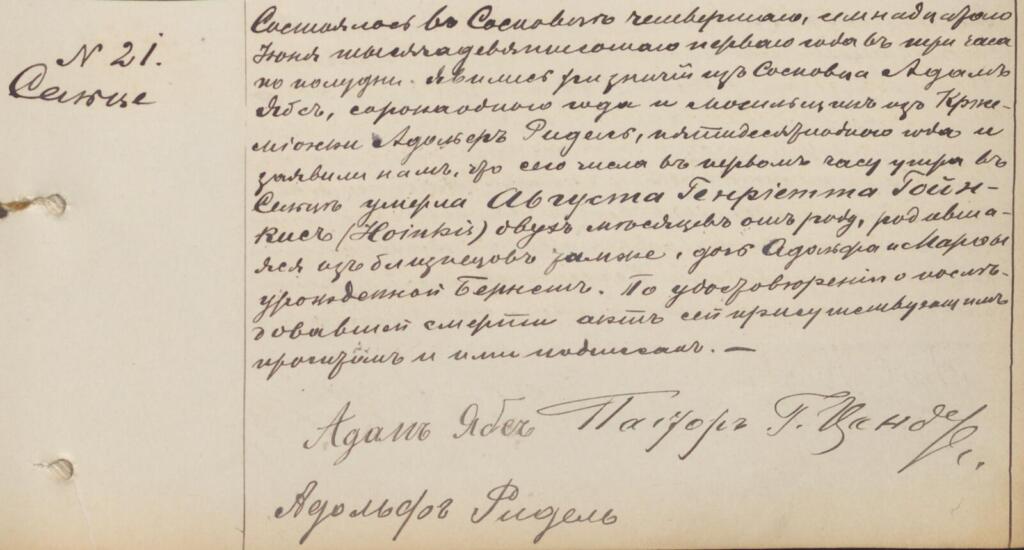 N 21.
Сельце
Состоялось въ Сосновцѣ четвертаго, семнадцатаго
Іюня тысяча девятисотаго перваго года въ три часа
по полудни. Явились ризничій изъ Сосновца Адамъ
Ябсъ, сорока одного года и могильщикъ изъ Крже-
міонки Адольфъ Ридель, пятидесяти одного года и
заявили намъ, что сего числа въ первомъ часу утра въ
Сельцѣ умерла Августа Генріетта Гойн-
кисъ (Hoinkis) двухъ мѣсяцевъ отъ роду, родивша-
яся изъ близнецовъ тамже, дочь Адольфа и Марты
урожденной Бернертъ. По удостовѣреніи о послѣ-
довавшей смерти актъ сей присутствующимъ
прочитанъ и ими подписанъ. —
Адамъ Ябсъ Пасторъ Г. Цандеръ.
Адольфъ Ридель